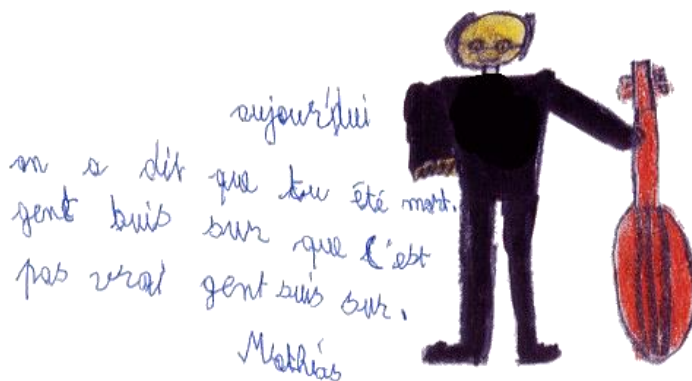 aujour'dui
on a dit que tu été mort.
gent suis sur que c'est
pas vrai gent suis sur.
Mathias